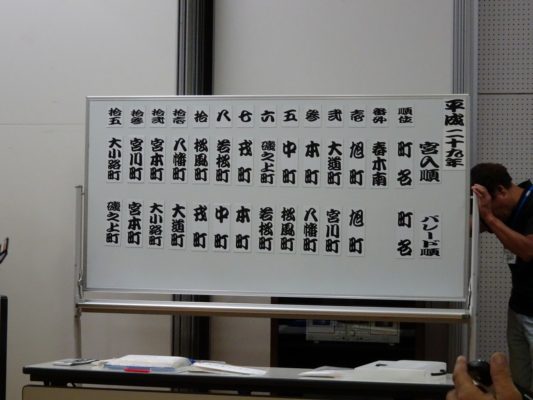 平成二十九年
宮入順 パレード順
順位 町名 町名
番外 春木南
壱 旭町 旭町
弐 大道町 宮川町
参 本町 八幡町
五 中町 松風町
六 磯之上町 若松町
七 戎町 本町
八 若松町 中町
拾 松風町 戎町
拾壱 八幡町 大道町
拾弐 宮本町 大小路町
拾参 宮川町 宮本町
拾五 大小路町 磯之上町